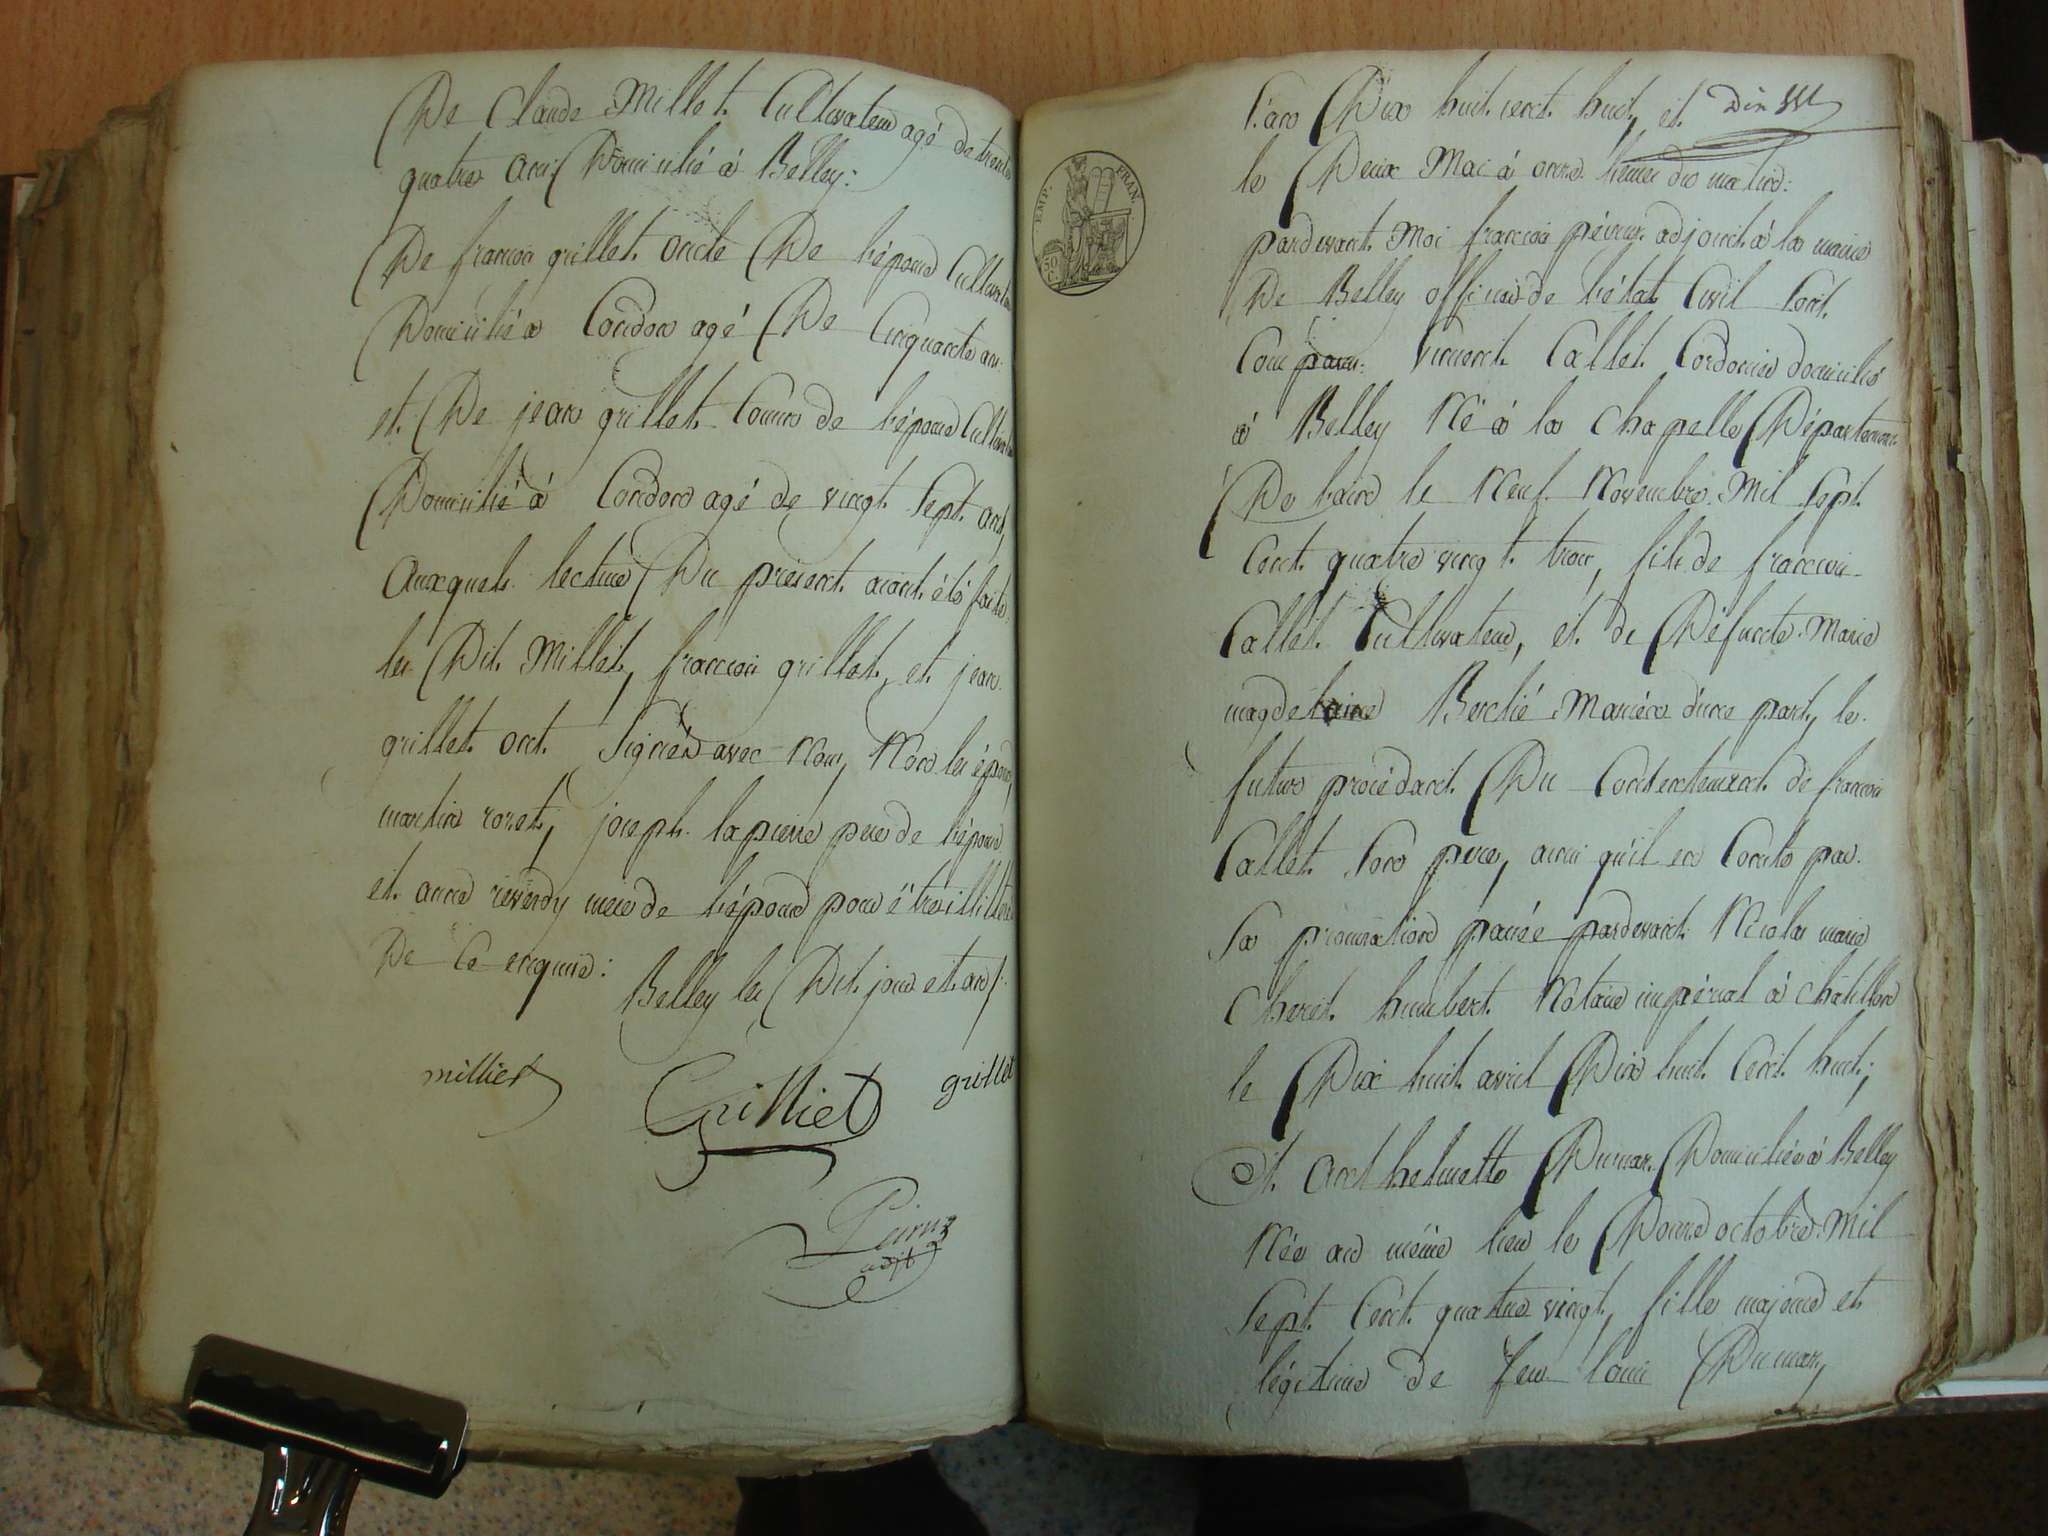 De Claude Millet Cultivateur agé de trente
quatre ans Domicilié à Belley:
De francois grillet oncle De l'épouse Cultivateur
Domicilié à Condon agé De Cinquante ans
et De jean grillet Cousin de l'épouse Cultivateur
Domicilié à Condon agé de vingt Sept ans,
Auxquels lecture Du présent aiant été faite
les Dit Millet, francois grillet, et jean
grillet ont Signés avec Nous, Non les époux
martin roret, joseph lapierre pere de l'épouse
et anne reverdy mere de l'époux pour être illiteré
De Ce enquis:
Belley les Dit jour et an/.
milliet
Grilliet
grillet
Peirus
adjt
l'an Dix huit cent huit, et
le Deux Mai à onze heures du matin:
EMP. FRAN.
50 C.
pardevant Moi francois péirus adjoint à la mairie
De Belley officier de l'état Civil Sont
Comparu: vincent Callet Cordonier domicilié
à Belley Né à la Chapelle Département
De l'ain le Neuf Novembre Mil Sept
Cent quatre vingt trois, fils de francois
Callet Cultivateur, et de Défuncte Marie
magdelaine Mariéx d'une part, le
futur procédant Du Contentement de francois
Callet Son pere, ainsi qu'il en Conste par
Sa procuration passée pardevant Nicolas marie
humbert Notaire impérial à Châtillon
le Dix huit avril Dix huit Cent huit;
Et Anthelmette Dumas Domiciliée à Belley
Née au même lieu le Douze octobre Mil
Sept Cent quatre vingt, fille majeure et
légitime de feu louis Dumas,